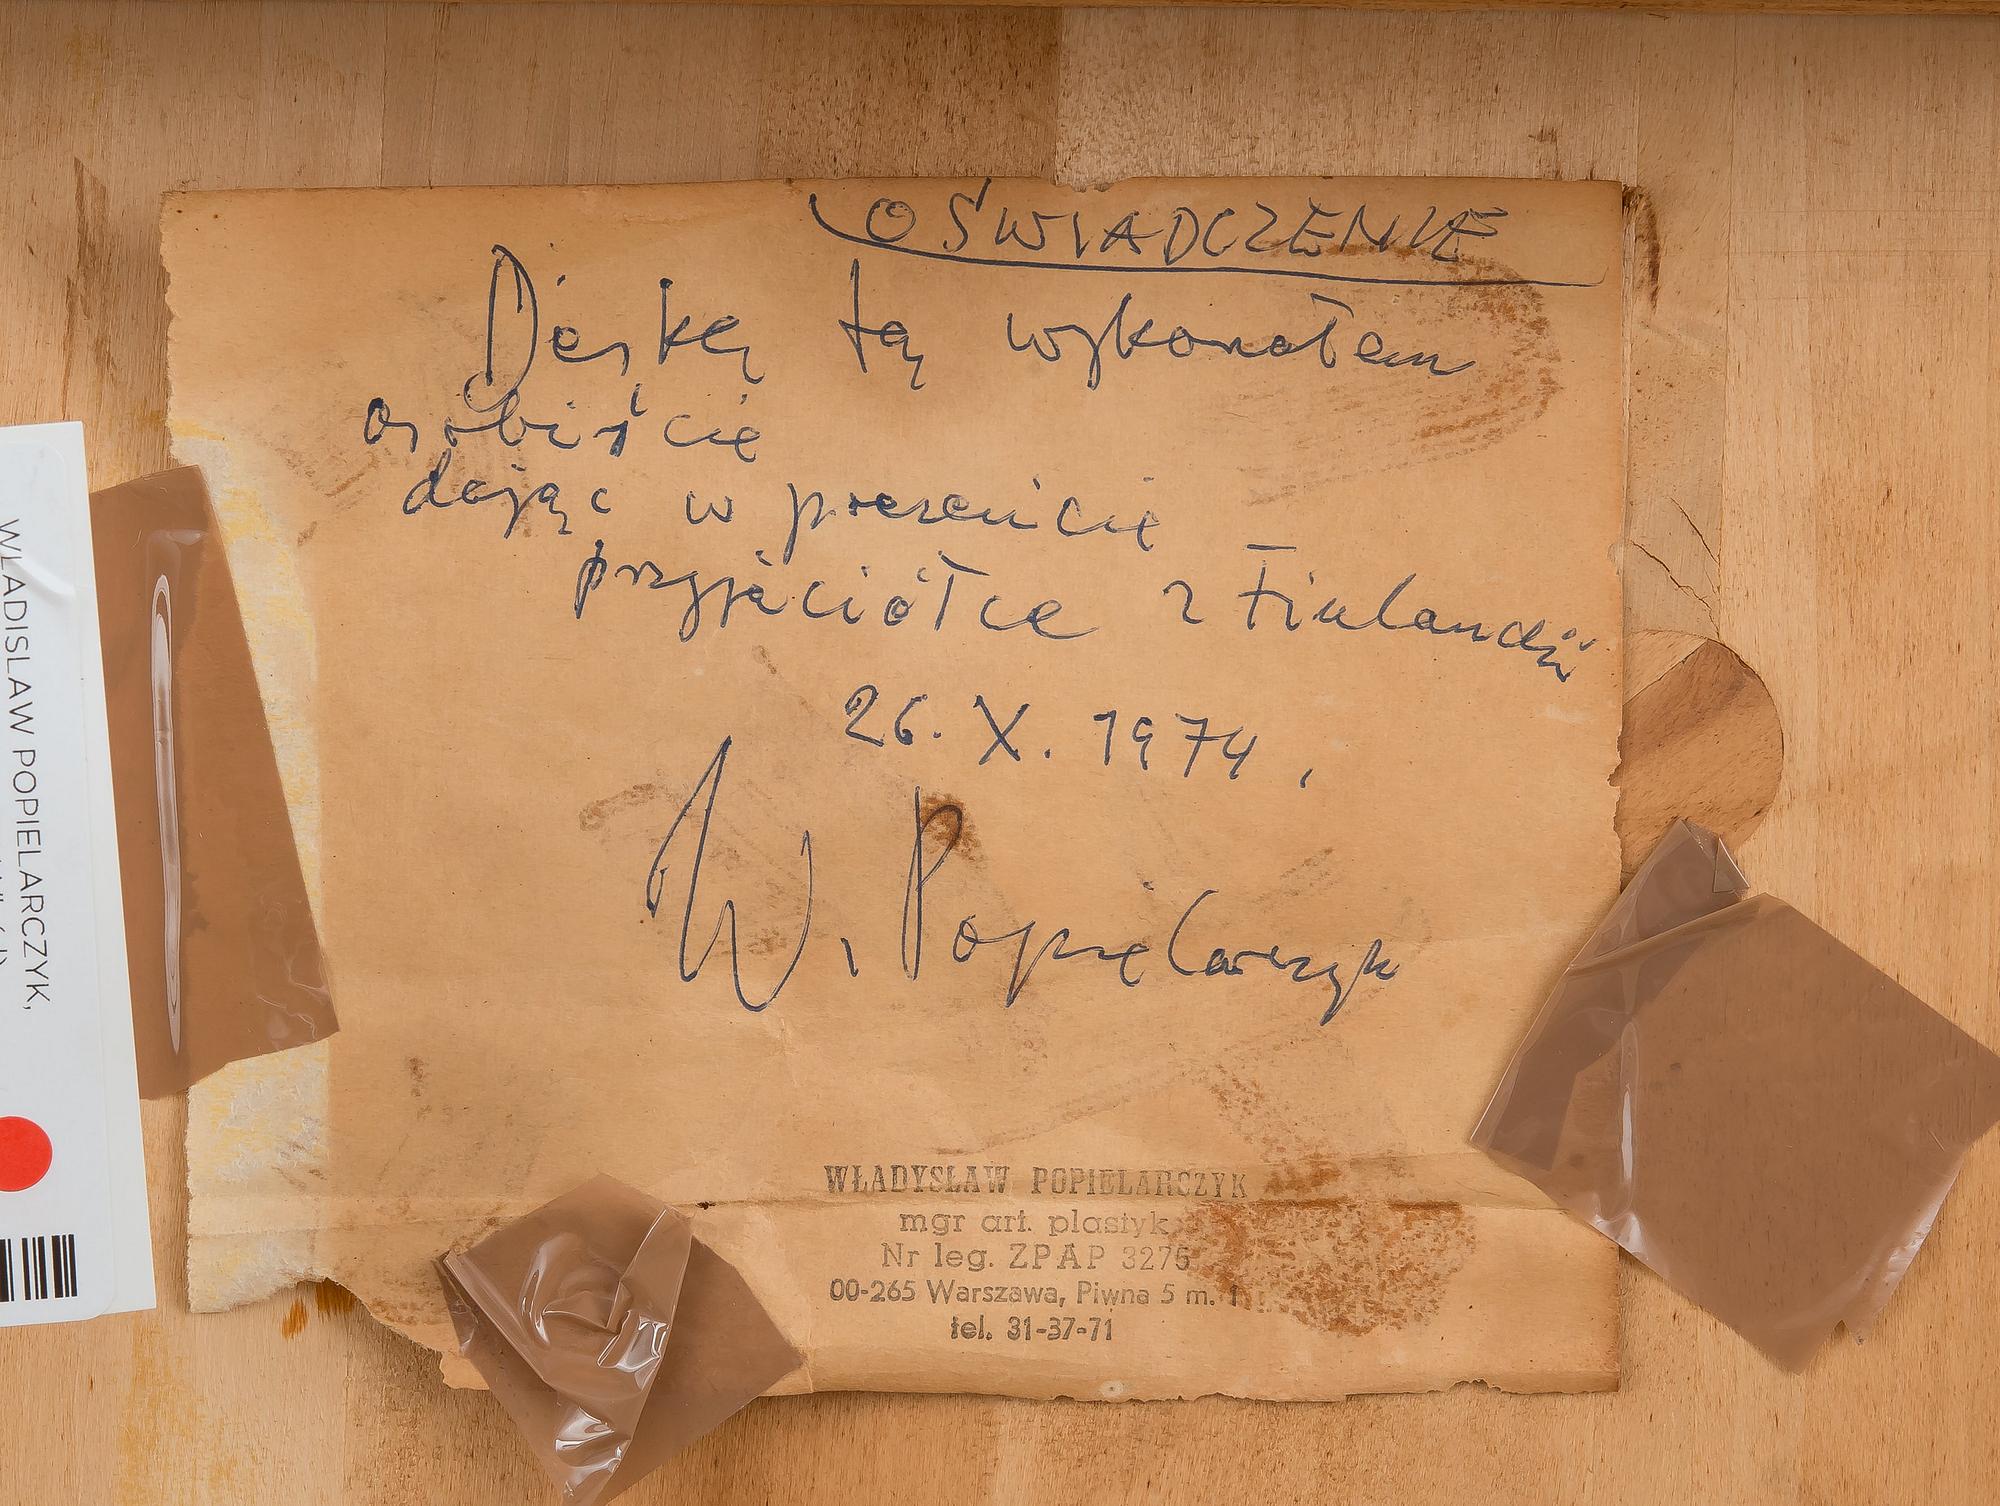 OŚWIADCZENIE
Deskę tą wykonałem
osobiście
dając w prezencie
przyjaciółce z Finlandii
26. X. 1974.
W. Popielarczyk
WŁADYSŁAW POPIELARCZYK
mgr art. plastyk
Nr leg. ZPAP 3275
00-265 Warszawa, Piwna 5 m. 1
tel. 31-37-71
WŁADISLAW POPIELARCZYK,